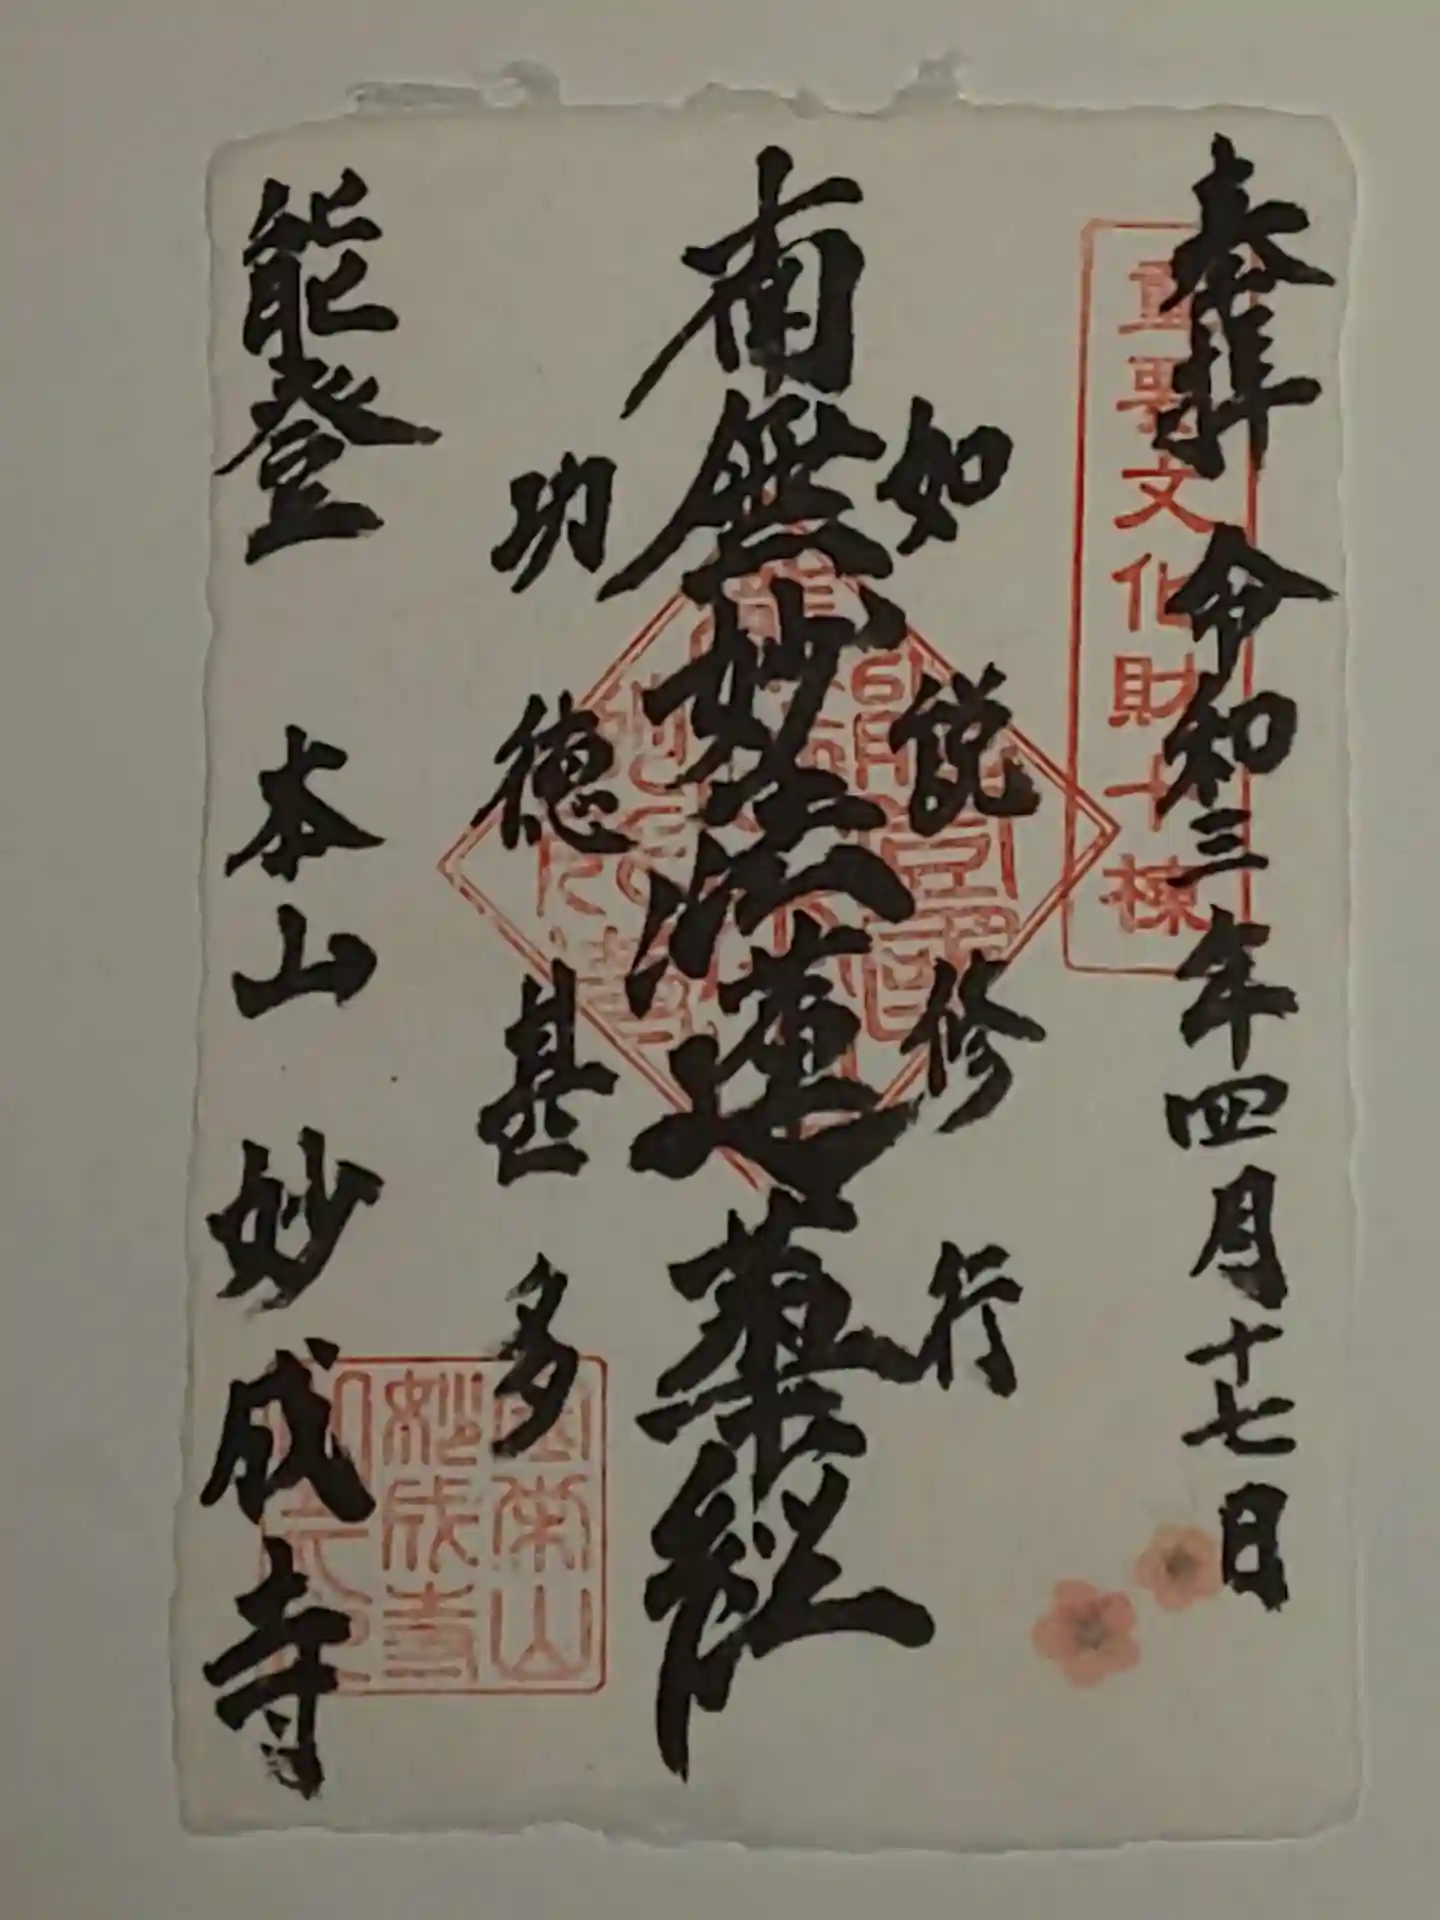 奉拝 令和三年四月十七日
重要文化財十棟
如説修行
南無妙法蓮華経
功徳甚多
能登 本山 妙成寺
妙成寺